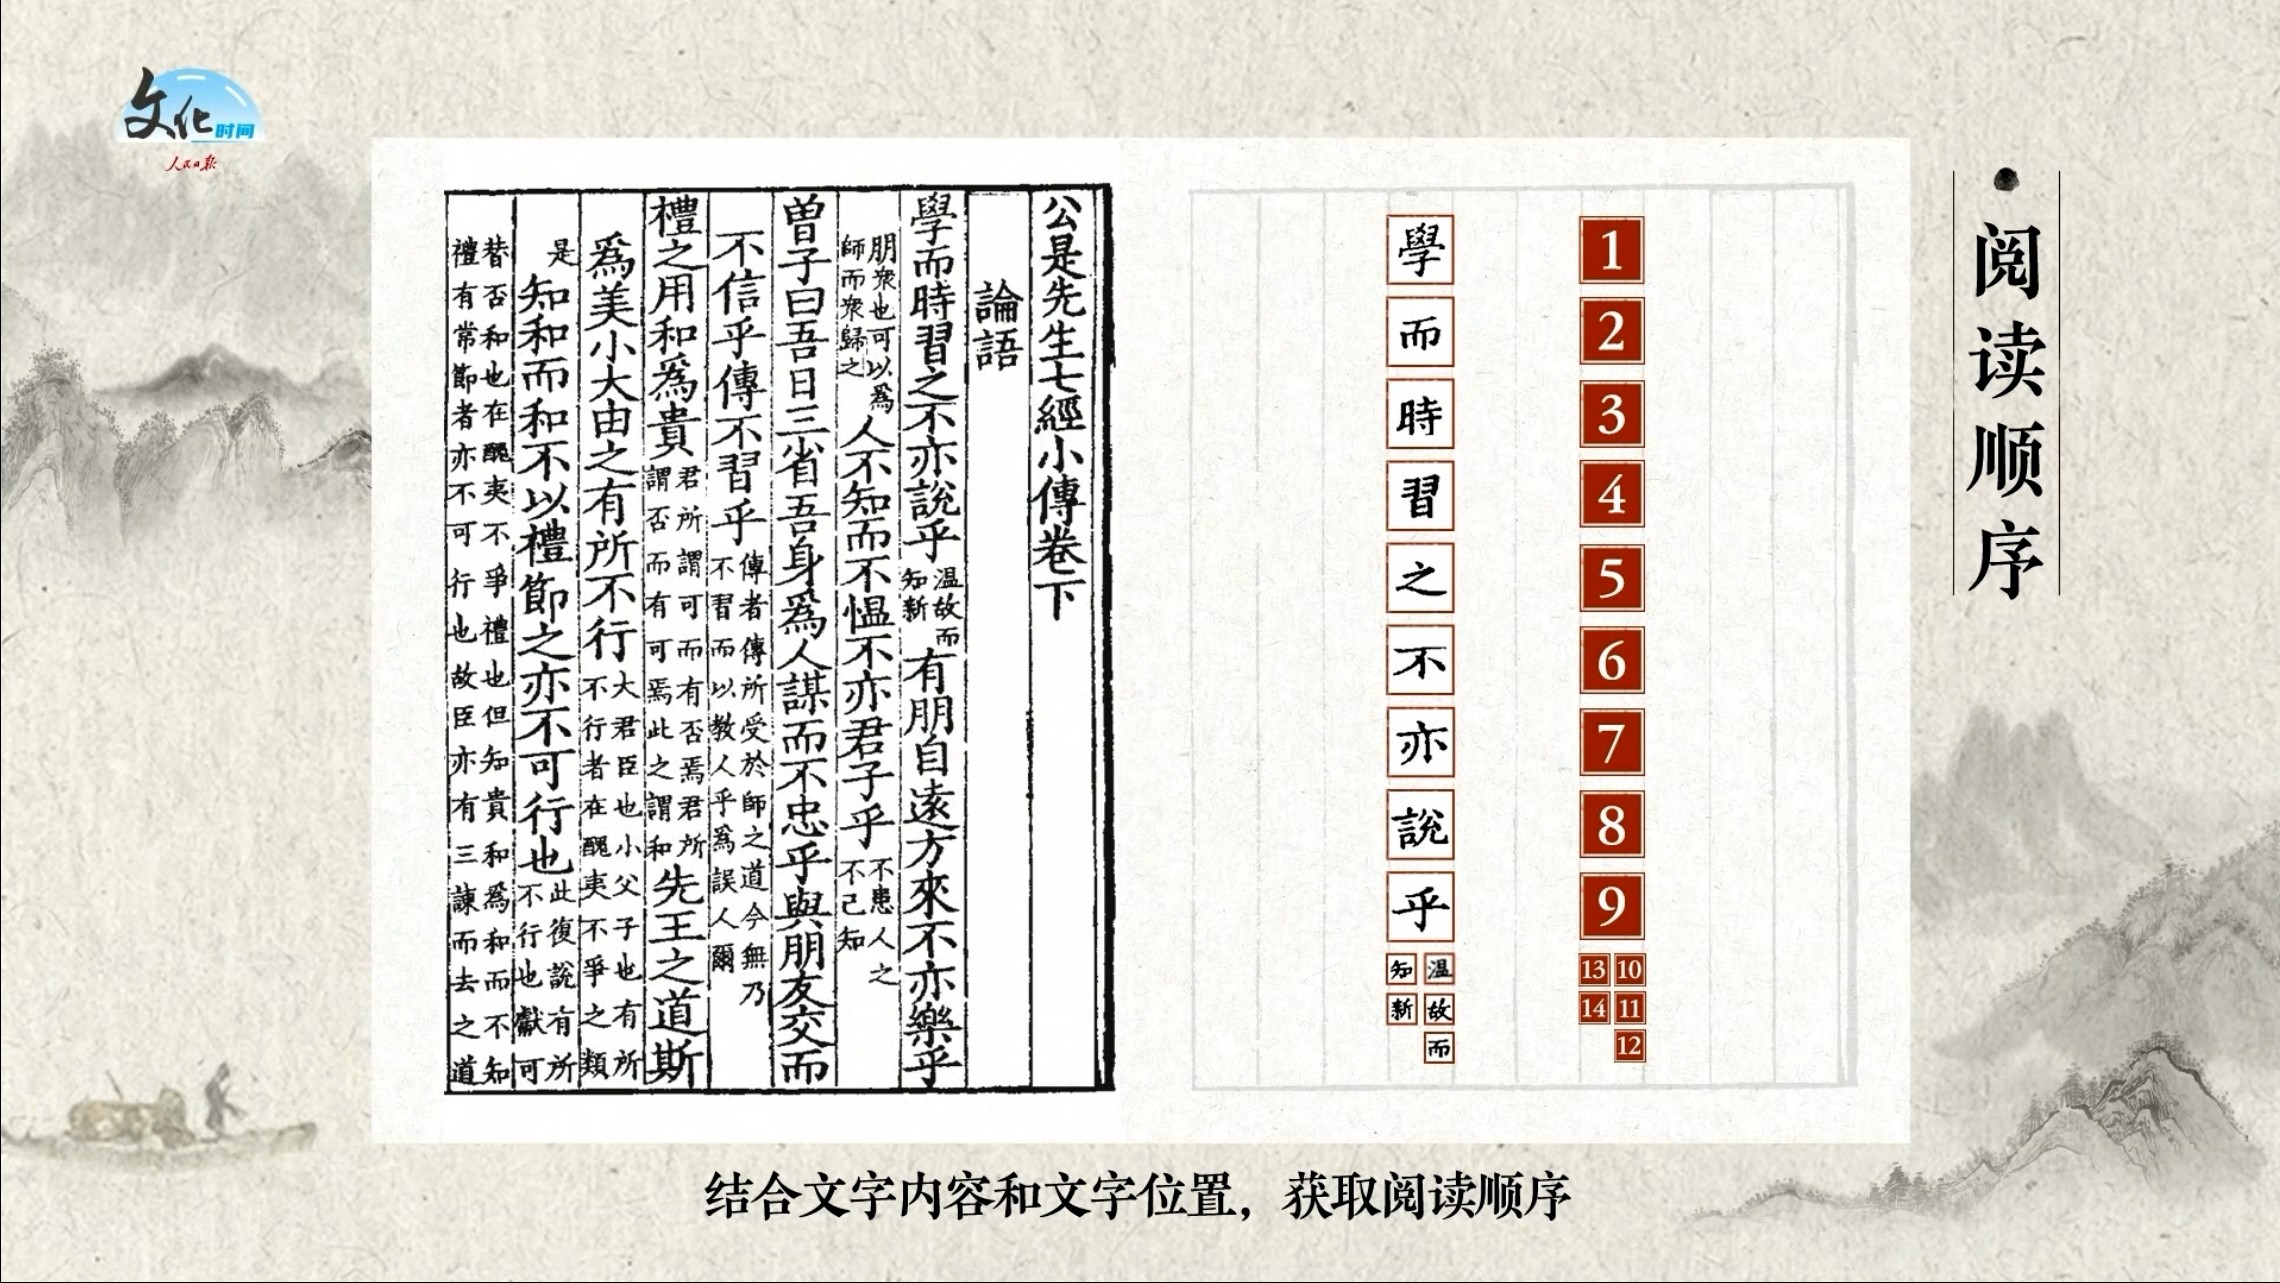 文化时间
人民日报
公是先生七經小傳卷下
論語
學而時習之不亦說乎
温故而
知新
有朋自遠方來不亦樂乎
朋衆也可以爲
師而衆歸之
人不知而不愠不亦君子乎
不患人之
不己知
曽子曰吾日三省吾身爲人謀而不忠乎與朋友交而
不信乎傳不習乎
傳者傳所受於師之道今無乃
不習而以教人乎爲誤人爾
禮之用和爲貴
君所謂可而有否焉君所
謂否而有可焉此之謂和
先王之道斯
爲美小大由之有所不行
大君臣也小父子也有所
不行者在醜夷不爭之類
是
知和而和不以禮節之亦不可行也
此復說有所
不行也獻可
替否和也在醜夷不爭禮也但知貴和爲和而不知
禮有常節者亦不可行也故臣亦有三諫而去之道
學而時習之不亦說乎
温故而
知新
1
2
3
4
5
6
7
8
9
10
11
12
13
14
阅读顺序
结合文字内容和文字位置，获取阅读顺序